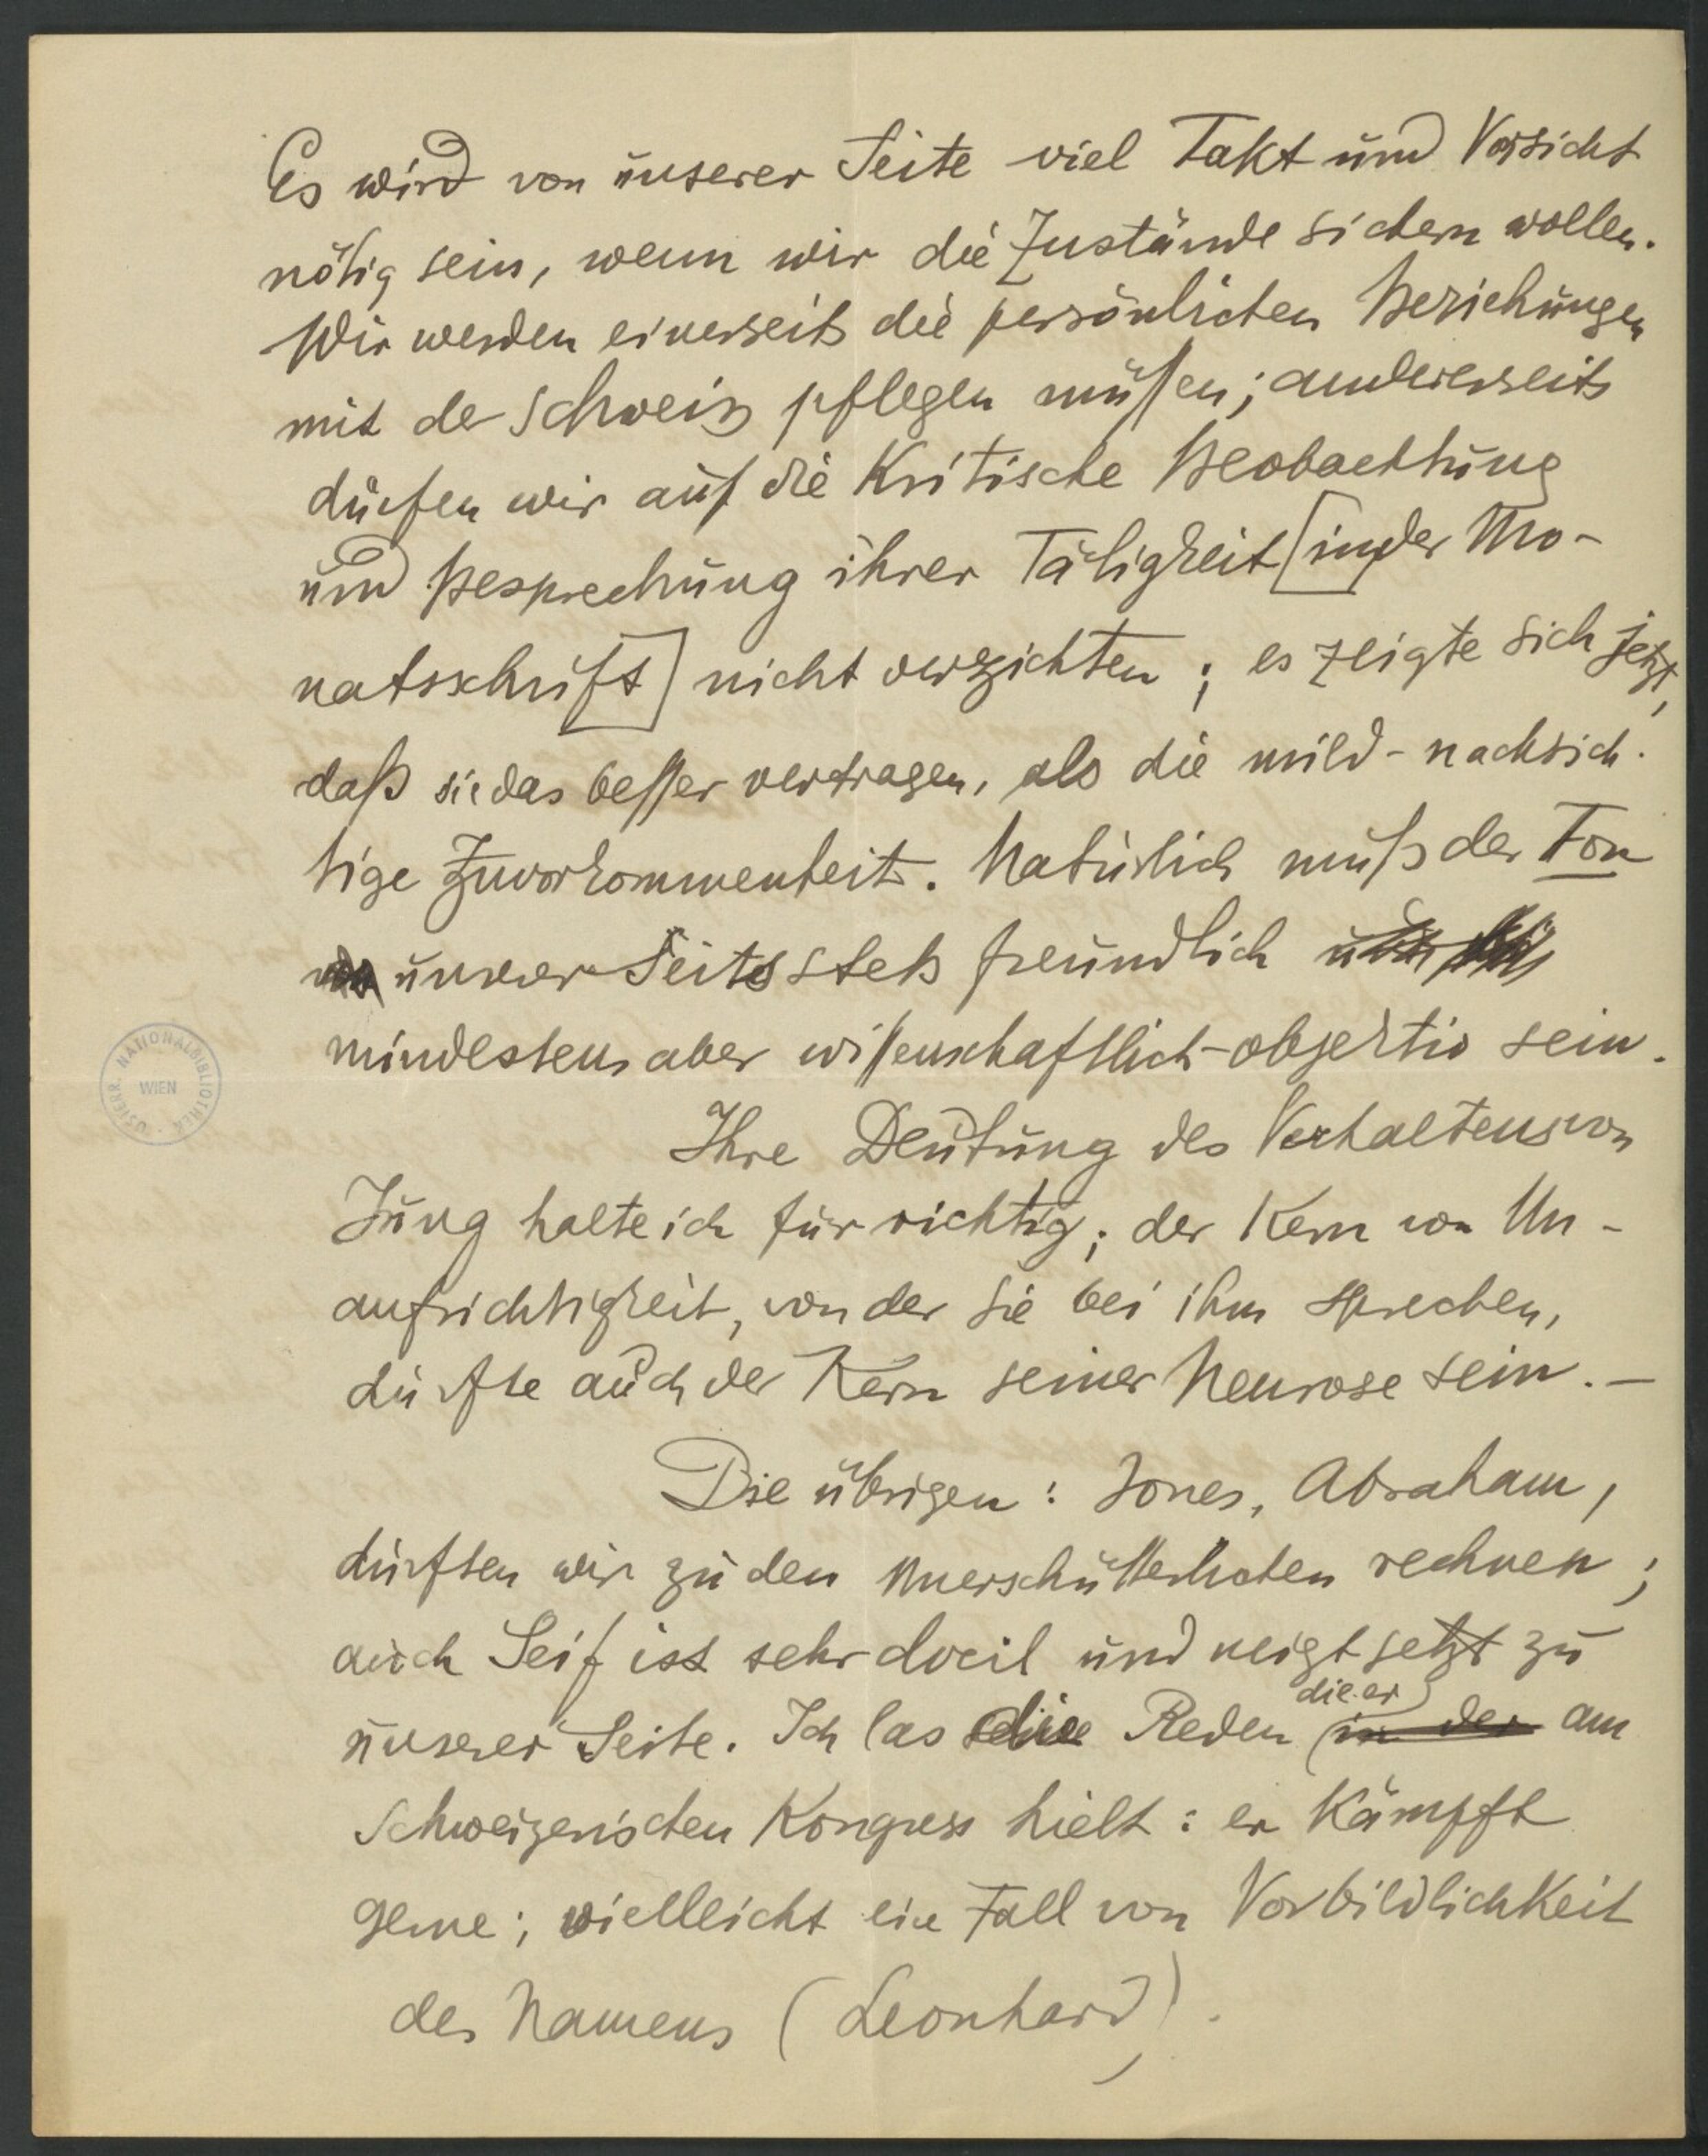 Es wird von unserer Seite viel Takt und Vorsicht
nötig sein, wenn wir die Zustände sichern wollen.
Wir werden einerseits die persönlichen Beziehungen
mit de Schweiz pflegen müssen; andererseits
dürfen wir auf die Kritische Beobachtung
und Besprechung ihrer Tätigkeit [in der Mo-
natsschrift] nicht verzichten; es zeigte sich jetzt,
daß sie das besser vertragen, als die mild-nachsich-
tige Zuvorkommenheit. Natürlich muß der Ton
unserer Seits stets freundlich
mindestens aber wissenschaftlich-objektiv sein.
Ihre Deutung des Verhaltens von
Jung halte ich für richtig; der Kern von Un-
aufrichtigkeit, von der Sie bei ihm sprechen,
dürfte auch der Kern seiner Neurose sein. —
Die übrigen: Jones, Abraham,
dürften wir zu den unerschütterlichen rechnen;
auch Seif ist sehr docil und neigt jetzt zu
unserer Seite. Ich las die Reden (in der die er am
Schweizerischen Kongress hielt: er Kämpft
gerne; vielleicht ein Fall von Vorbildlichkeit
des Namens (Leonhard).
ÖSTERR. NATIONALBIBLIOTHEK
WIEN